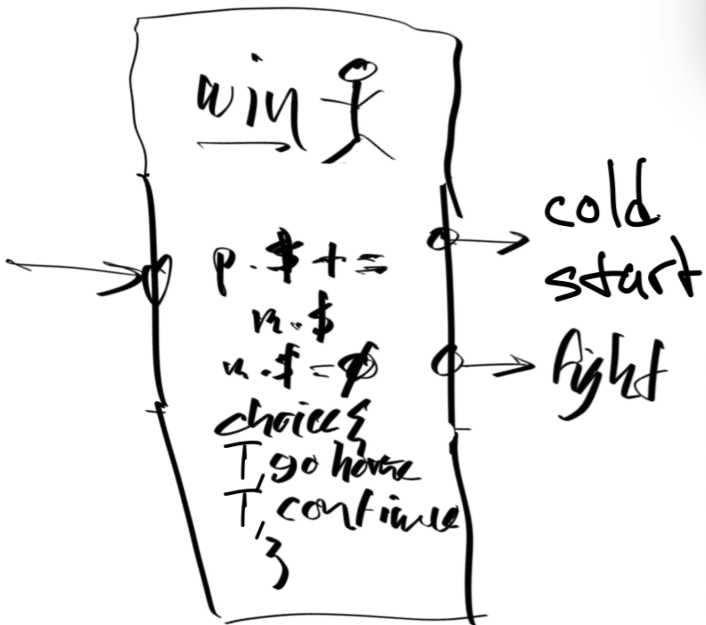 win
p.$ +=
m.$
m.$ = 0
choice{
T, go home
T, continue
}
cold
start
fight